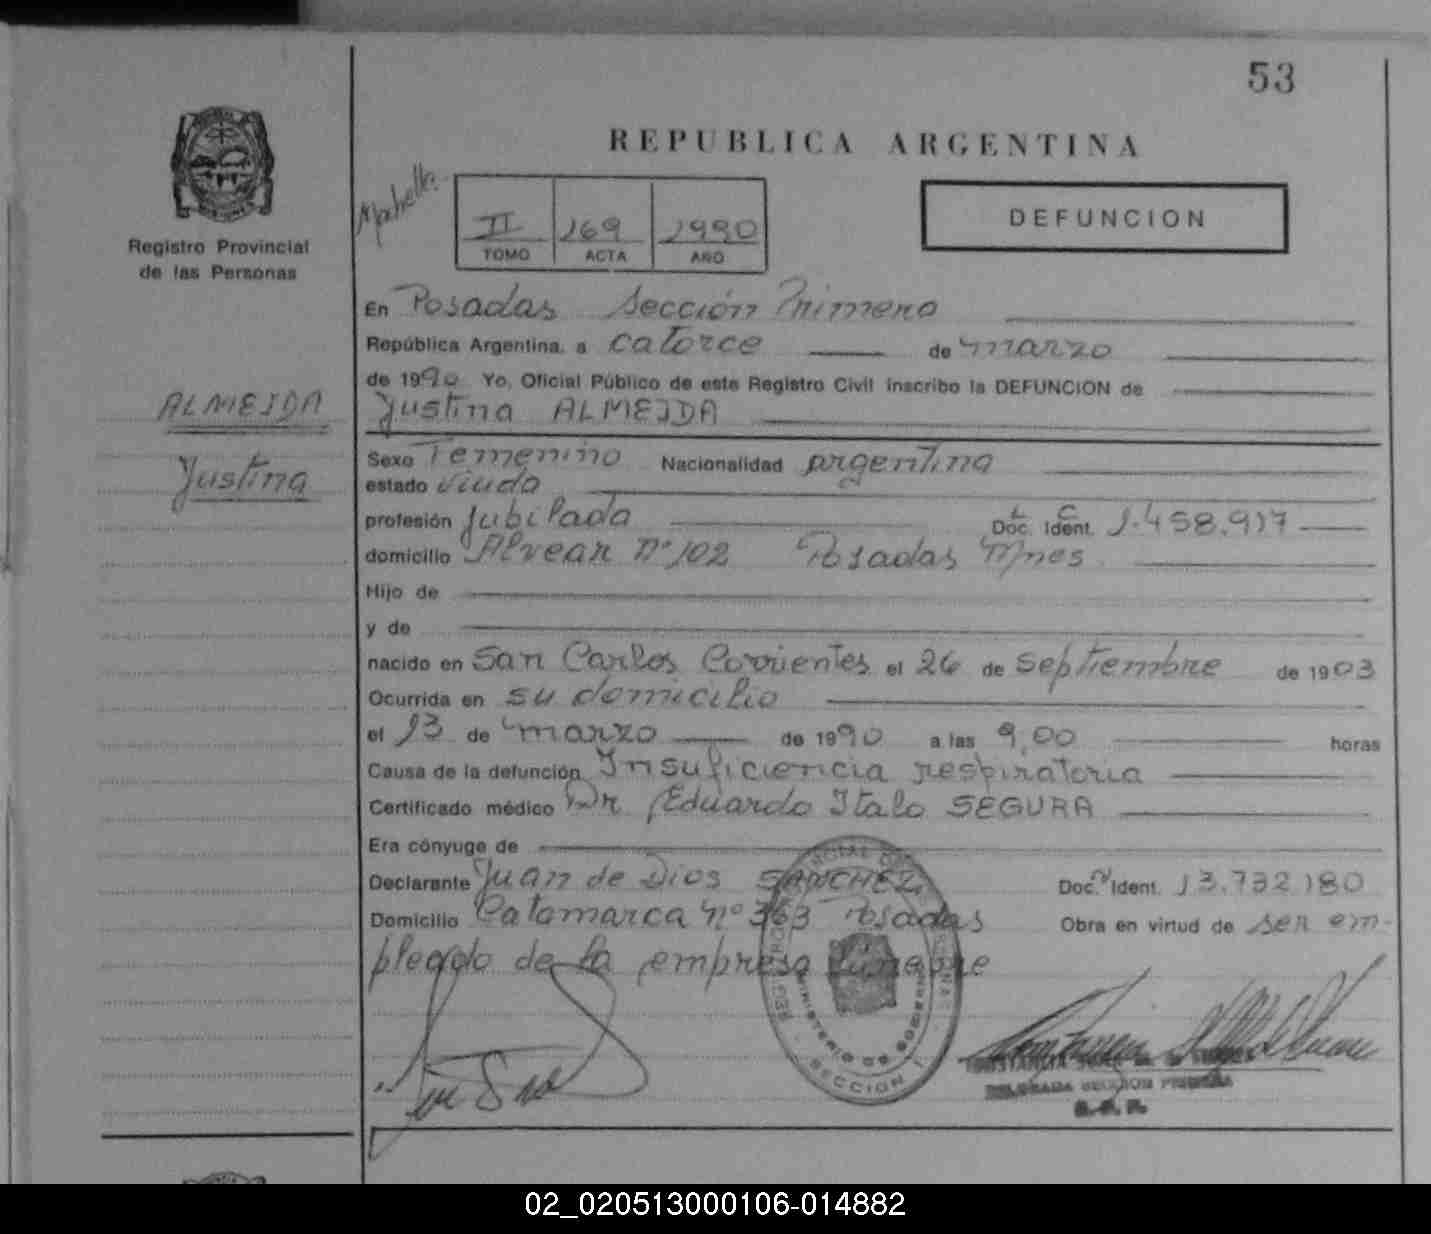 53
REPUBLICA ARGENTINA
Registro Provincial
de las Personas
II 169 1990
TOMO ACTA AÑO
DEFUNCION
En Posadas Sección Primera
República Argentina, a catorce de marzo
de 1990 Yo, Oficial Público de este Registro Civil inscribo la DEFUNCION de
Justina ALMEIDA
ALMEIDA
Justina
Sexo Femenino Nacionalidad argentina
estado viuda
profesión Jubilada L C Doc. Ident. 1.458.917
domicilio Alvear Nº 102 Posadas Mnes
Hijo de
y de
nacido en San Carlos Corrientes el 26 de septiembre de 1903
Ocurrida en su domicilio
el 13 de marzo de 1990 a las 9,00 horas
Causa de la defunción Insuficiencia respiratoria
Certificado médico Dr Eduardo Italo SEGURA
Era cónyuge de
Declarante Juan de Dios SANCHEZ Doc. Ident. 13.732.180
Domicilio Catamarca nº 363 Posadas Obra en virtud de ser em-
pleado de la empresa fúnebre
MINISTERIO DE GOBIERNO
SECCION 1
DELEGADA SECCION PRIMERA
02_020513000106-014882